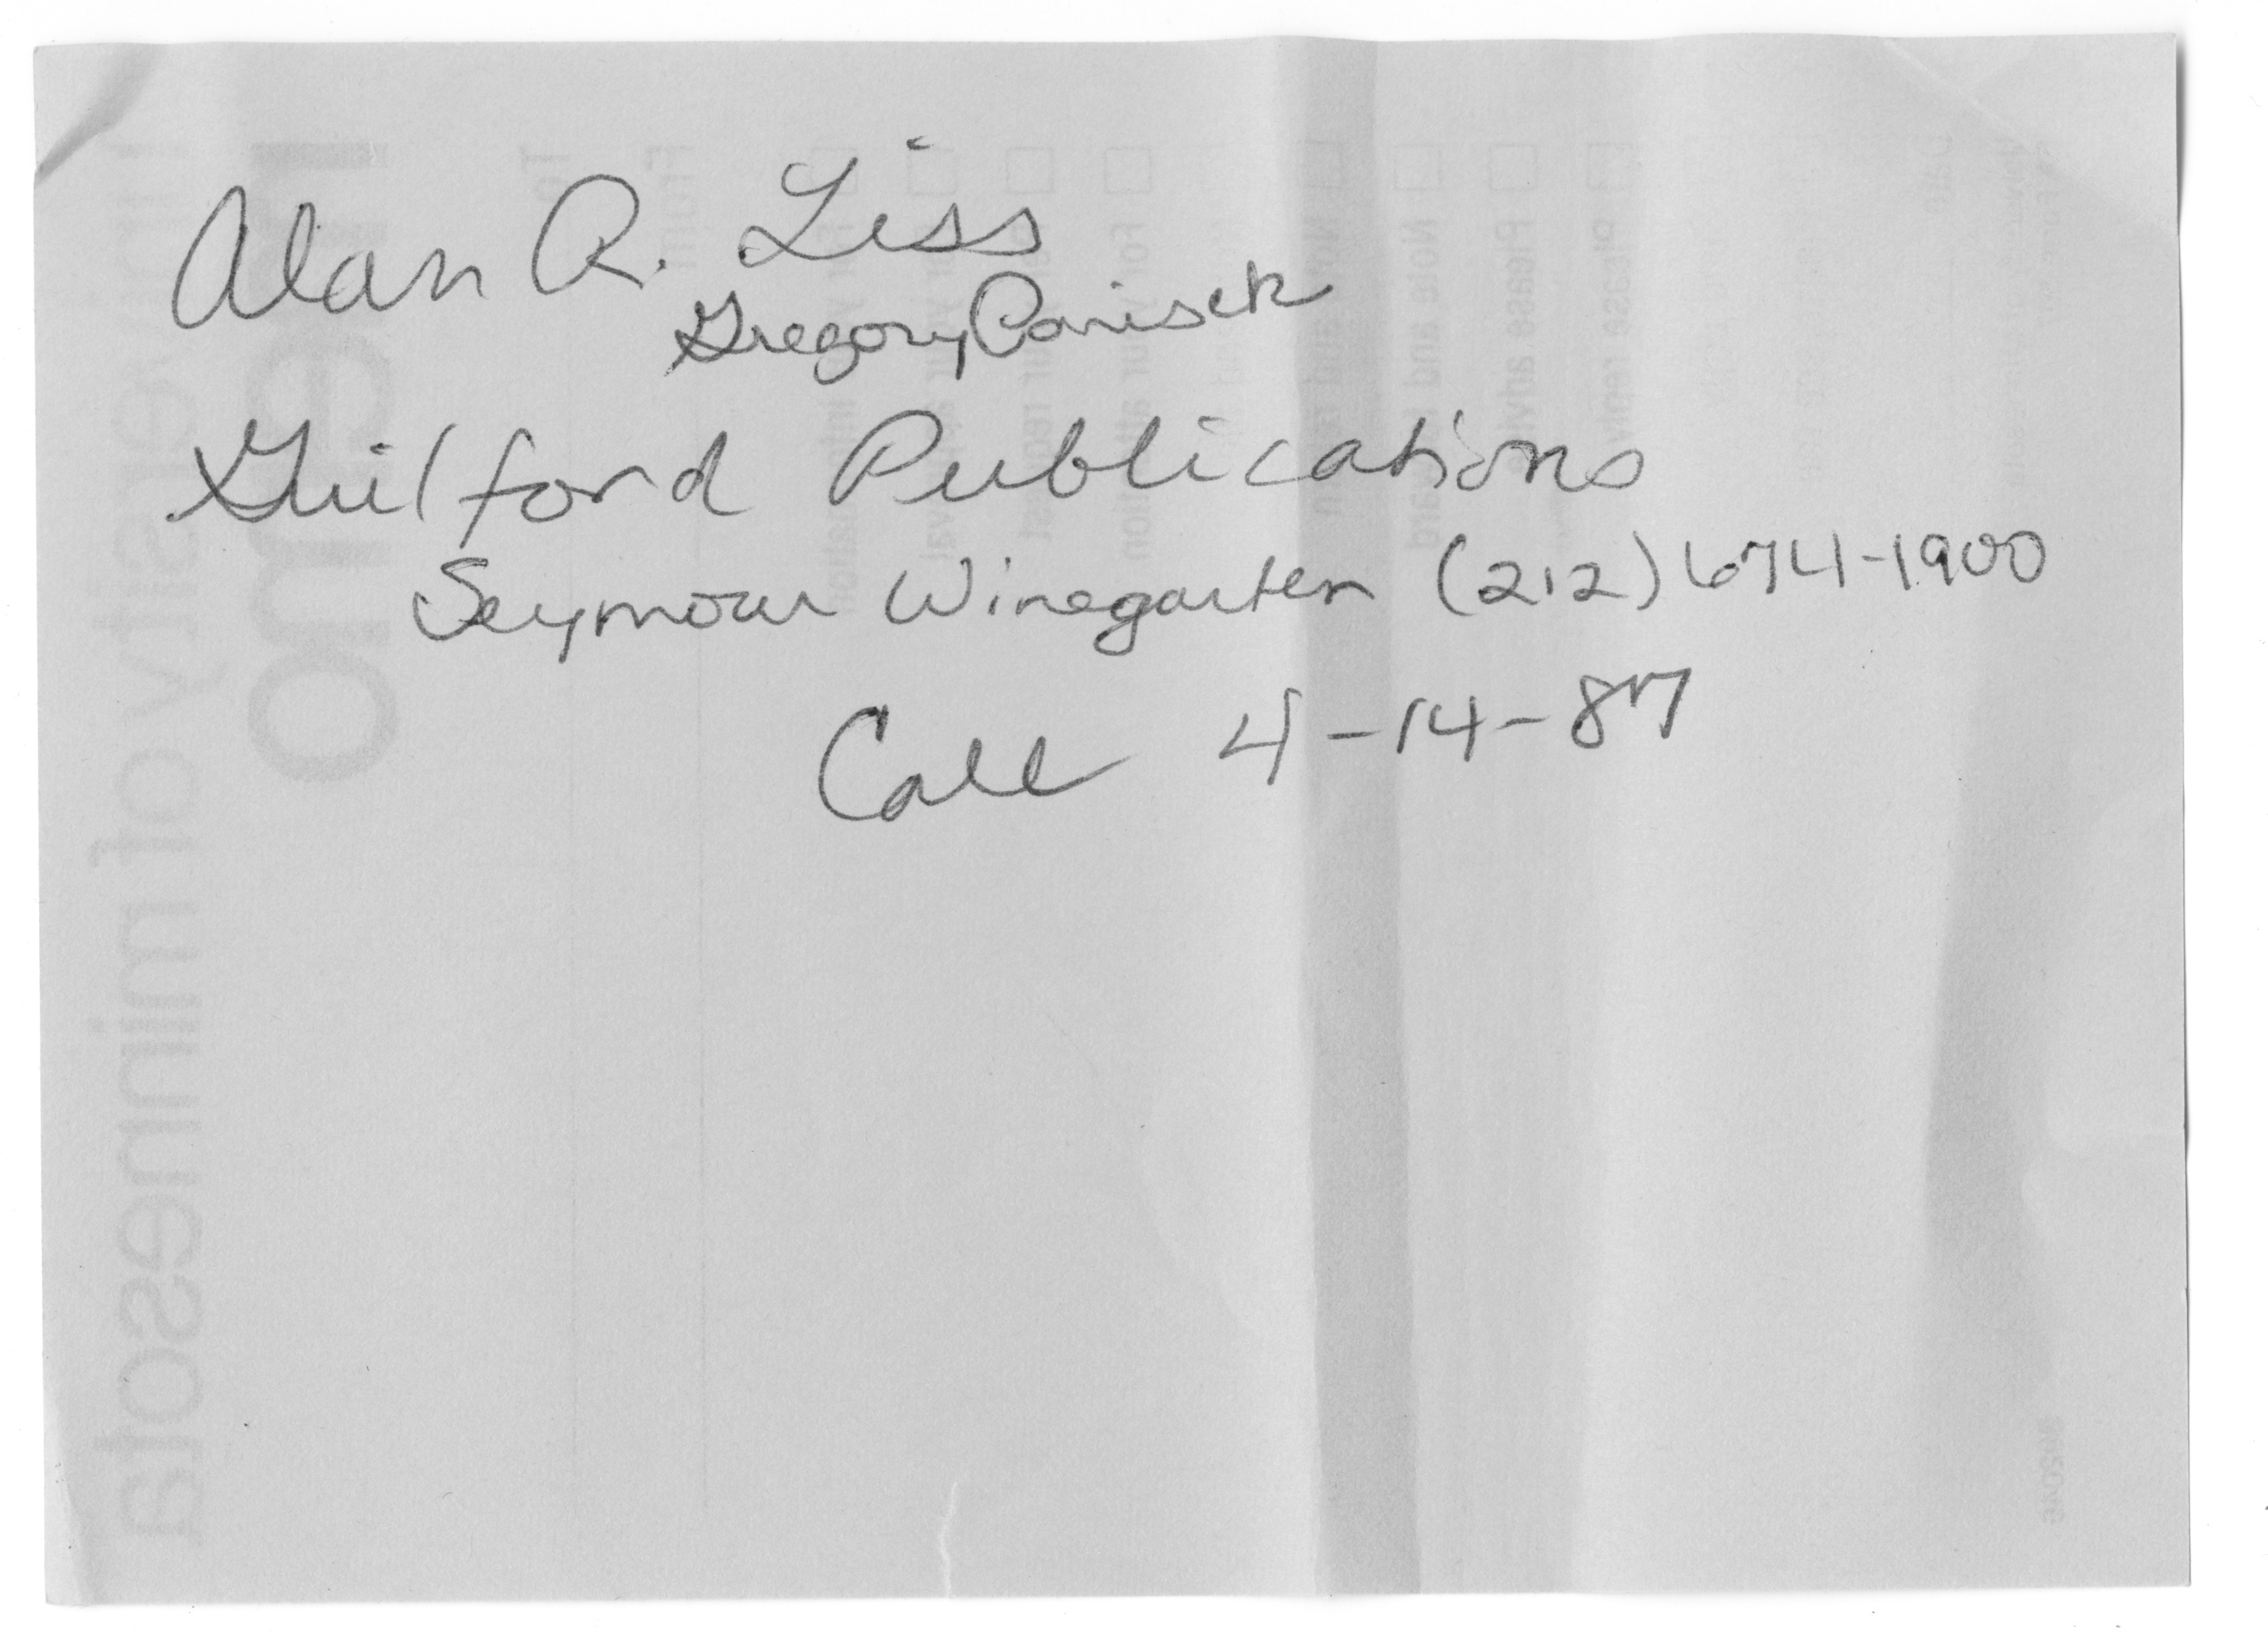 Alan R. Liss
Gregory Parisek
Guilford Publications
Seymour Winegarten (212) 674-1900
Call 4-14-87